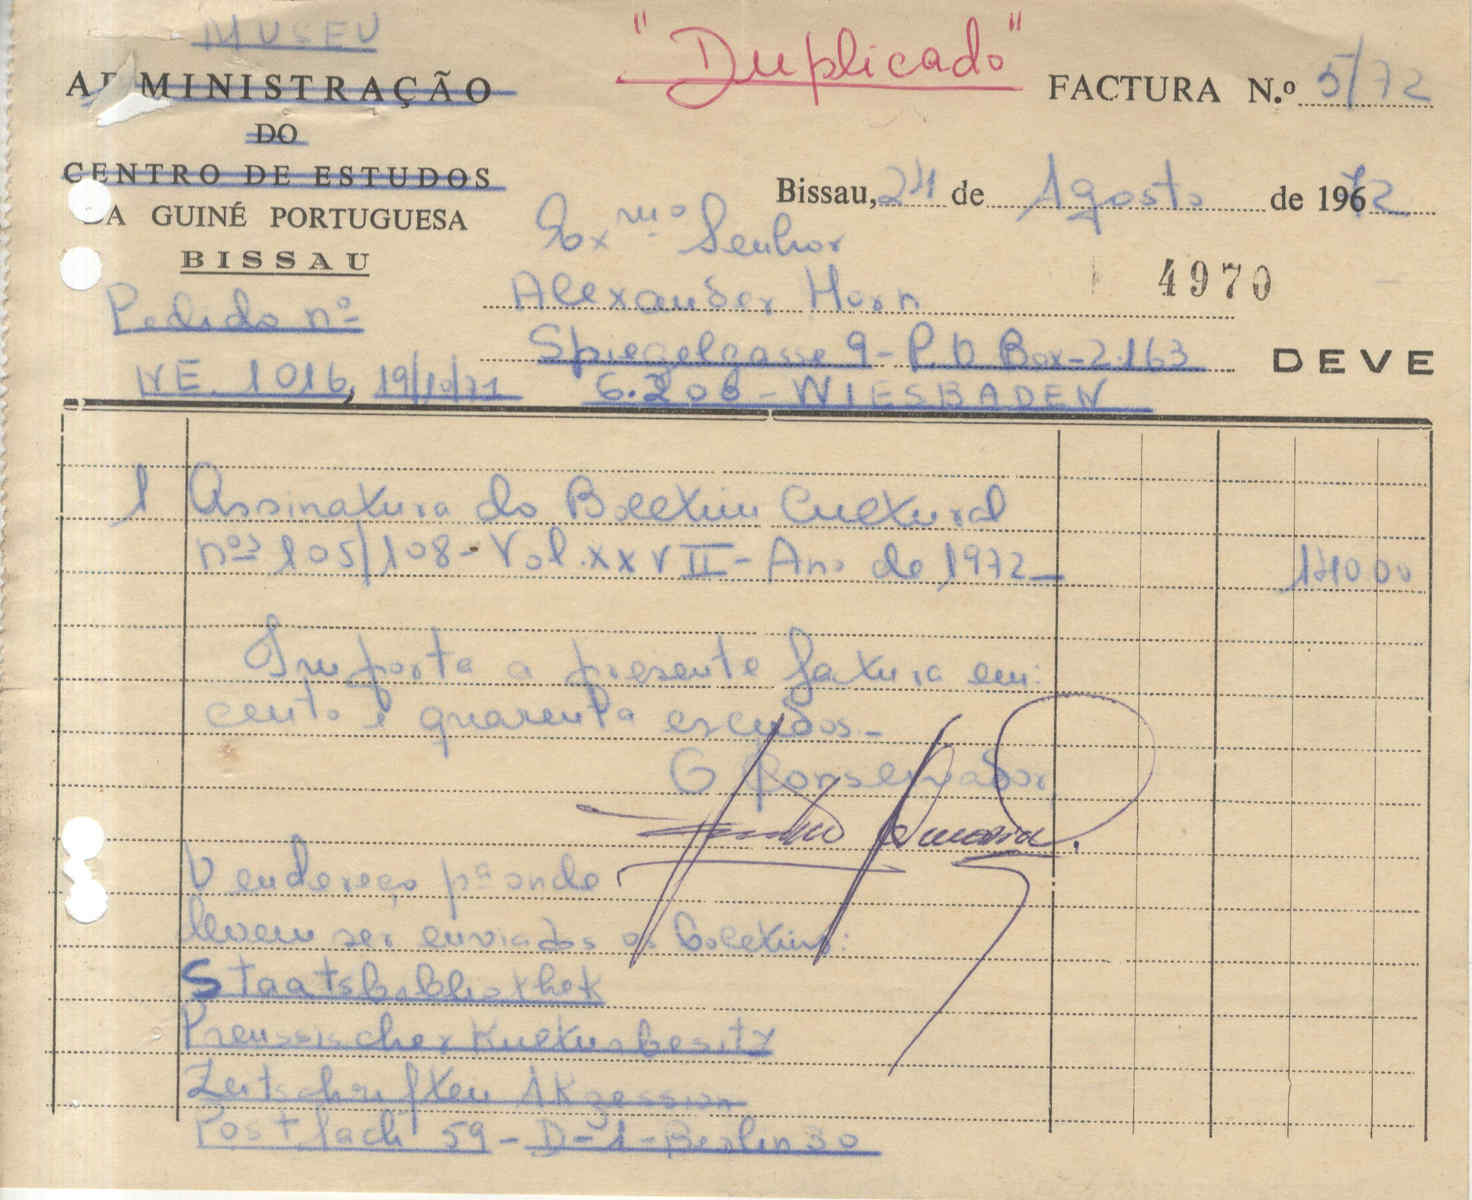 MUSEU
ADMINISTRAÇÃO
DO
CENTRO DE ESTUDOS
DA GUINÉ PORTUGUESA
BISSAU
"Duplicado"
FACTURA N.º 5/72
Bissau, 24 de Agosto de 1972
Exmº Senhor
Alexander Horn
4970
Spiegelgasse 9 - P.O Box - 2.163
DEVE
6.208 - WIESBADEN
Pedido nº
NE. 1016, 19/10/71
1 Assinatura do Boletim Cultural
nºs 105/108 - Vol. XXVII - Ano de 1972 - 140.00
Importa a presente fatura em:
cento e quarenta escudos. -
O Conservador
O endereço pª onde
devem ser enviados os boletins:
Staatsbibliothek
Preussischer Kulturbesitz
Zeitschriften Akzession
Postfach 59 - D - 1 - Berlin 30